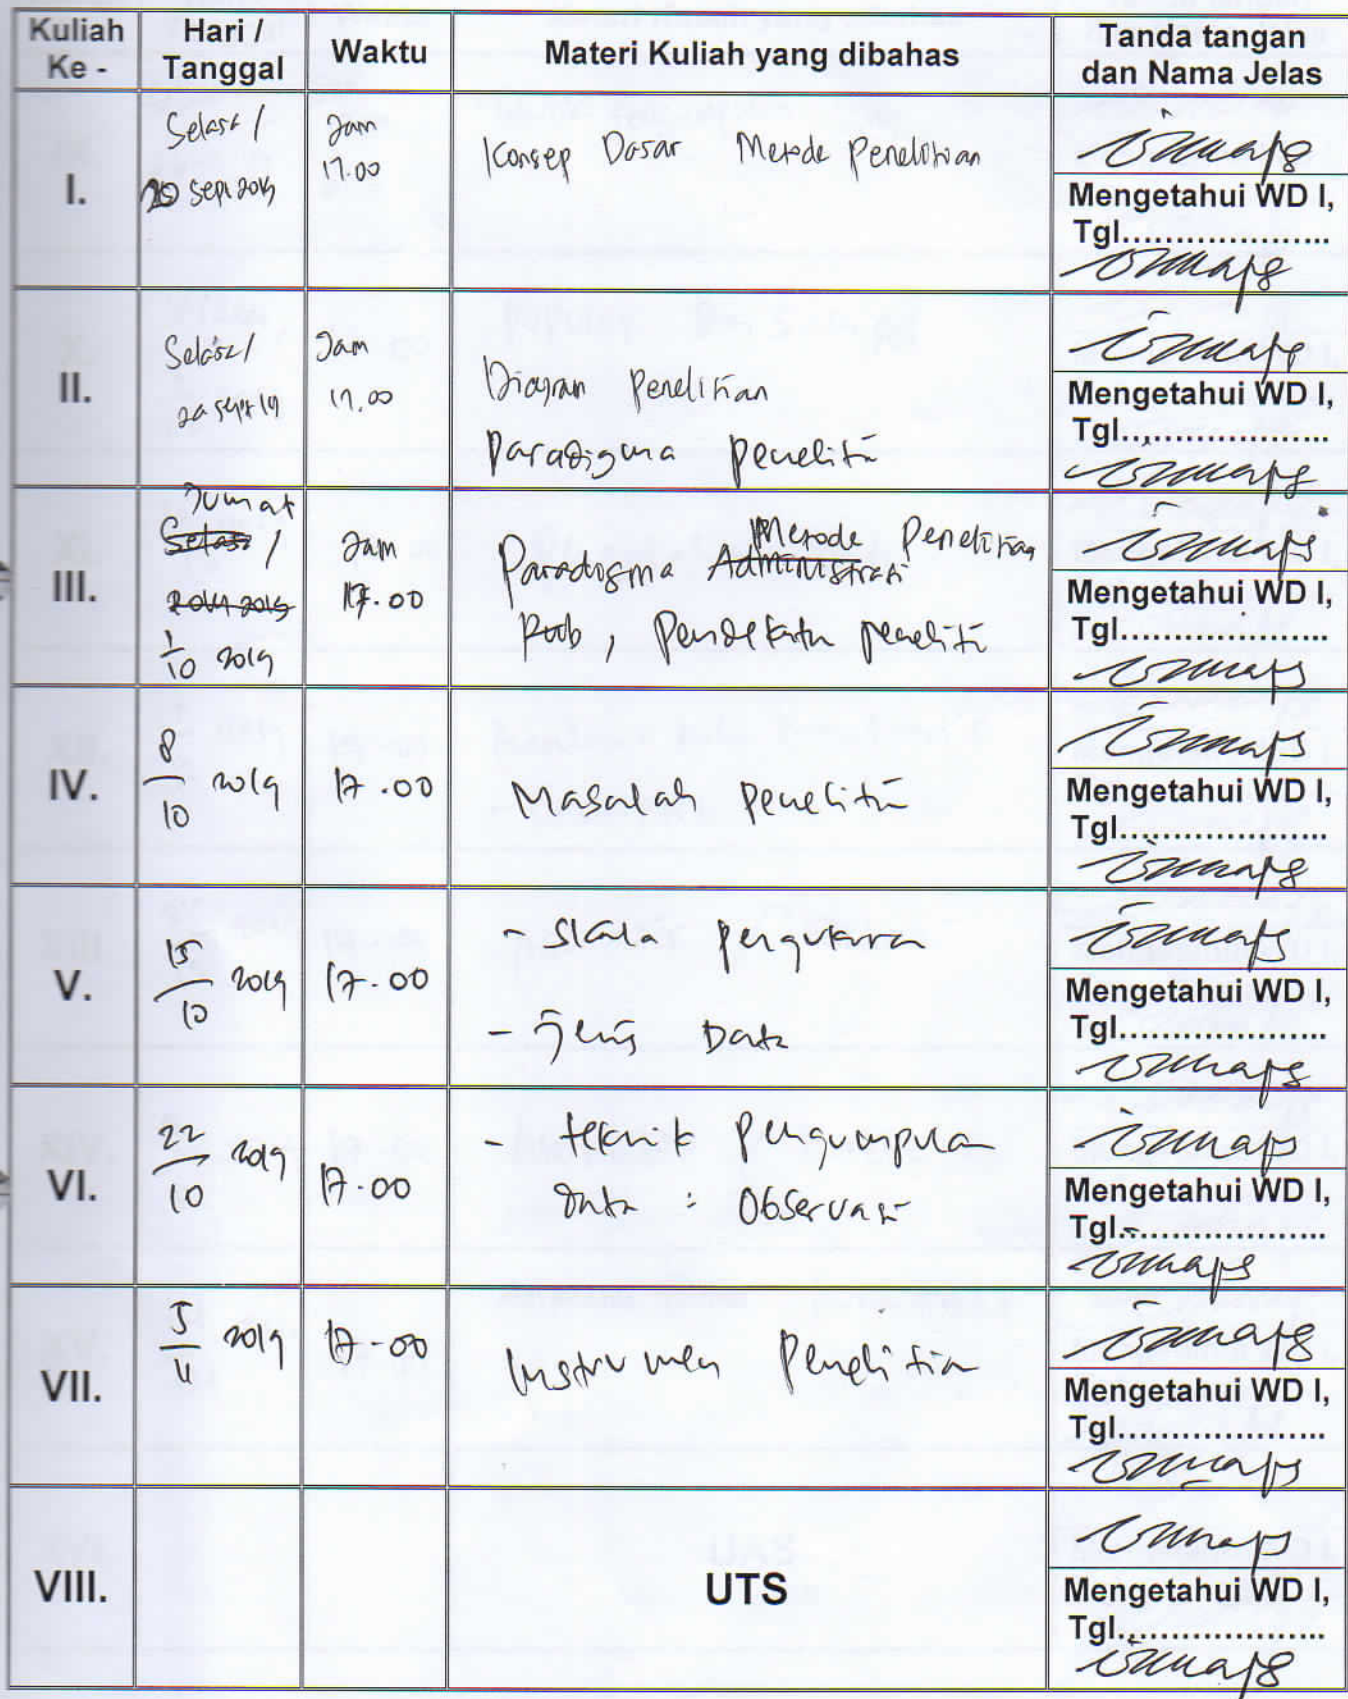 Kuliah Ke -
Hari / Tanggal
Waktu
Materi Kuliah yang dibahas
Tanda tangan dan Nama Jelas
I.
Selasa /
Sept 2019
Jam
17.00
Konsep Dasar Metode Penelitian
Mengetahui WD I,
Tgl....................
II.
Selasa /
Sept 19
Jam
17.00
Diagram Penelitian
Paradigma peneliti
Mengetahui WD I,
Tgl....................
III.
Jumat
Selasa /
1/10 2019
Jam
17.00
Metode Penelitian
Paradigma Administrasi
, Pendekatan peneliti
Mengetahui WD I,
Tgl....................
IV.
8/10 2019
17.00
Masalah peneliti
Mengetahui WD I,
Tgl....................
V.
15/10 2019
17.00
- skala pengukuran
- jenis Data
Mengetahui WD I,
Tgl....................
VI.
22/10 2019
17.00
- teknik pengumpulan
data : Observasi
Mengetahui WD I,
Tgl....................
VII.
5/11 2019
17.00
Instrumen Penelitian
Mengetahui WD I,
Tgl....................
VIII.
UTS
Mengetahui WD I,
Tgl....................